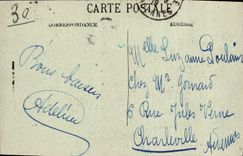 30
CARTE POSTALE
CORRESPONDANCE
ADRESSE
Bons baisers
Adeline
Melle Suzanne Poulain
chez Mr Gonard
6 Rue Jules Verne
Charleville
Ardennes